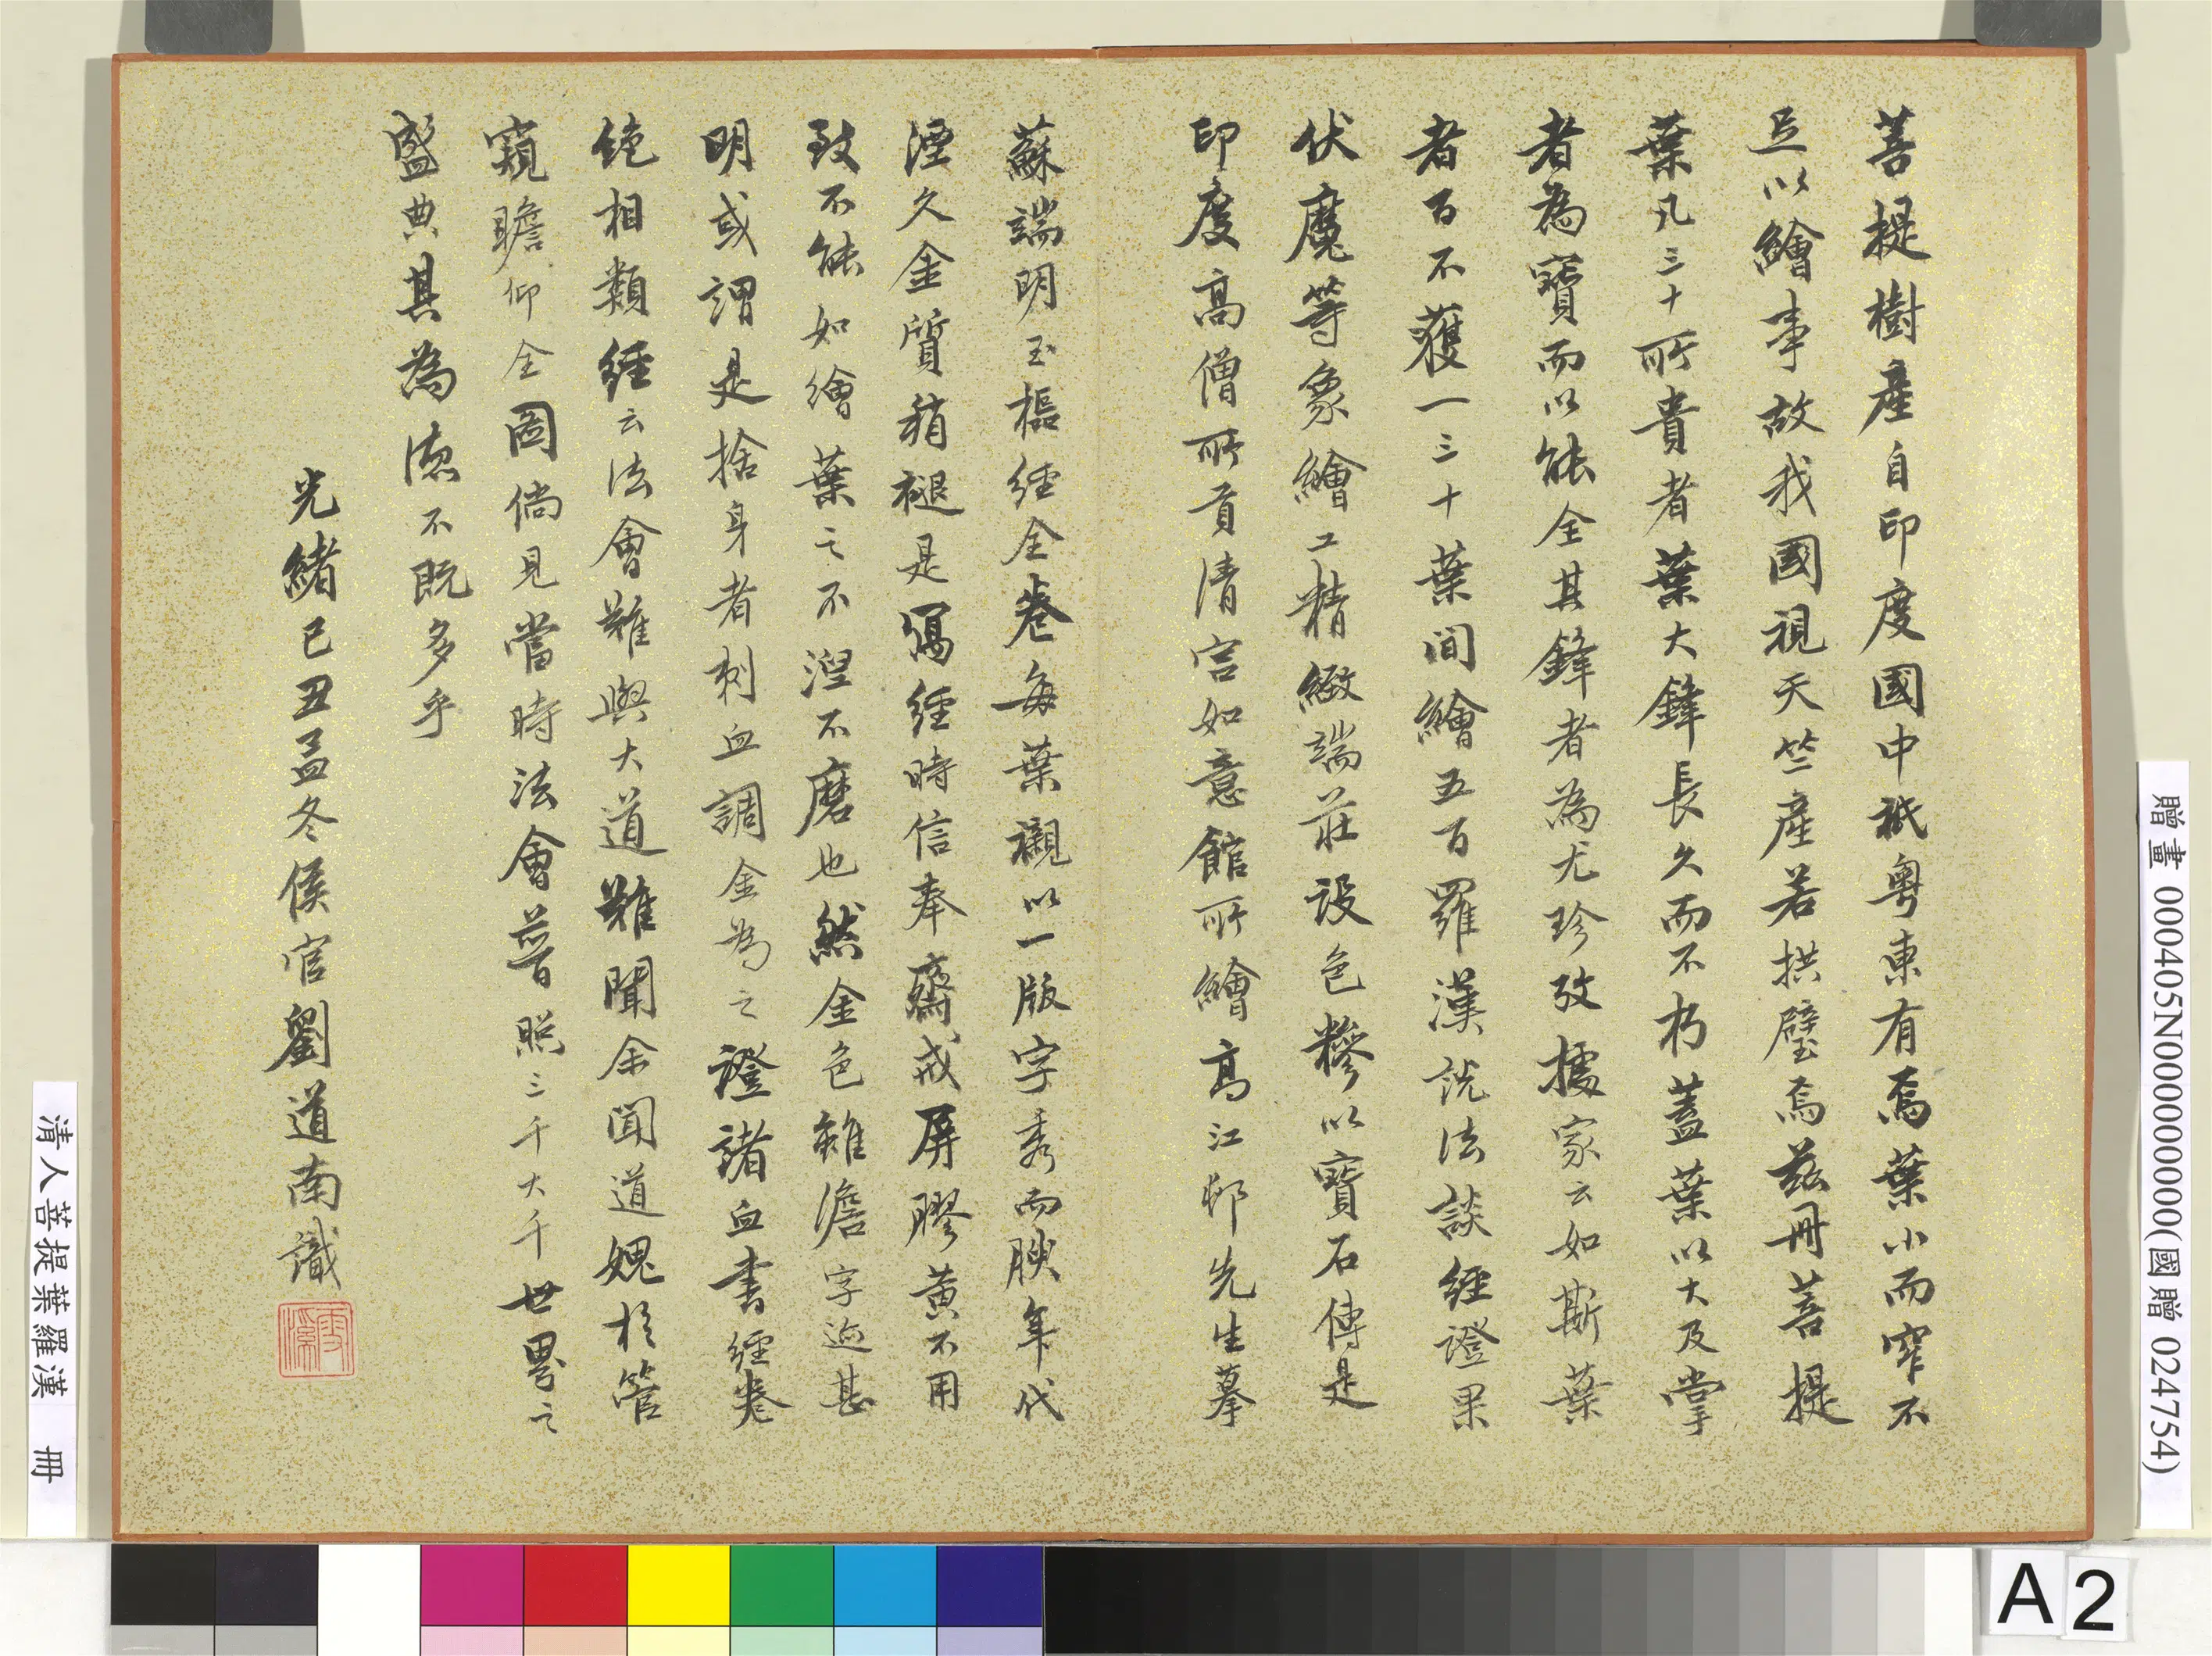 菩提樹產自印度國中祇粵東有焉葉小而窄不
足以繪事故我國視天竺產若拱璧焉茲冊菩提
葉凡三十所貴者葉大鋒長久而不朽蓋葉以大及掌
者為寶而以能全其鋒者為尤珍攷據家云如斯葉
者百不獲一三十葉間繪五百羅漢說法談經證果
伏魔等象繪工精緻端莊設色糝以寶石傳是
印度高僧所貢清宮如意館所繪高江邨先生摹
蘇端明玉樞經全卷每葉襯以一版字秀而腴年代
湮久金質稍褪是寫經時信奉齋戒屏膠黃不用
致不能如繪葉之不涅不磨也然金色雖澹字迹甚
明或謂是捨身者刺血調金為之證諸血書經卷
絕相類經云法會難與大道難聞余聞道媿於管
窺瞻仰全圖倘見當時法會普照三千大千世界之
盛典其為德不既多乎
光緒己丑孟冬侯官劉道南識
雪溪
贈畫 000405N000000000(國贈 024754)
清人菩提葉羅漢 冊
A2